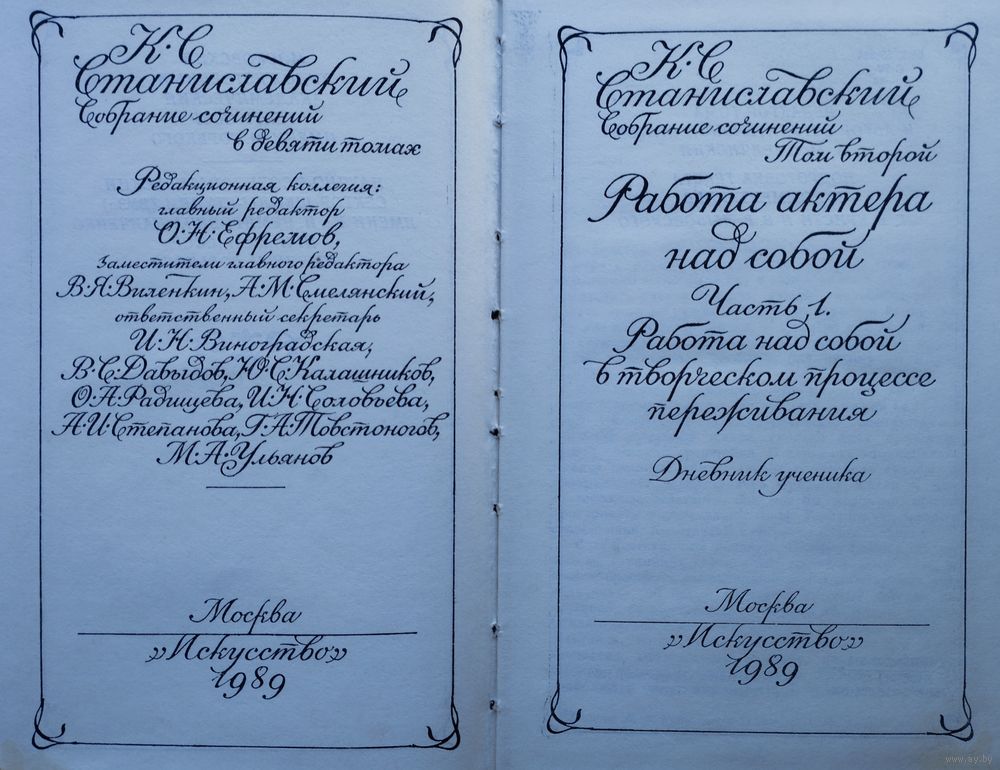 К·С
Станиславский
Собрание сочинений
в девяти томах
Редакционная коллегия:
главный редактор
О·Н·Ефремов,
заместители главного редактора
В·Я·Виленкин, А·М·Смелянский,
ответственный секретарь
И·Н·Виноградская,
В·С·Давыдов, Ю·С·Калашников,
О·А·Радищева, И·Н·Соловьева,
А·И·Степанова, Г·А·Товстоногов,
М·А·Ульянов
Москва
»Искусство»
1989
К·С
Станиславский
Собрание сочинений
Том второй
Работа актера
над собой
Часть 1.
Работа над собой
в творческом процессе
переживания
Дневник ученика
Москва
»Искусство»
1989
www.ay.by